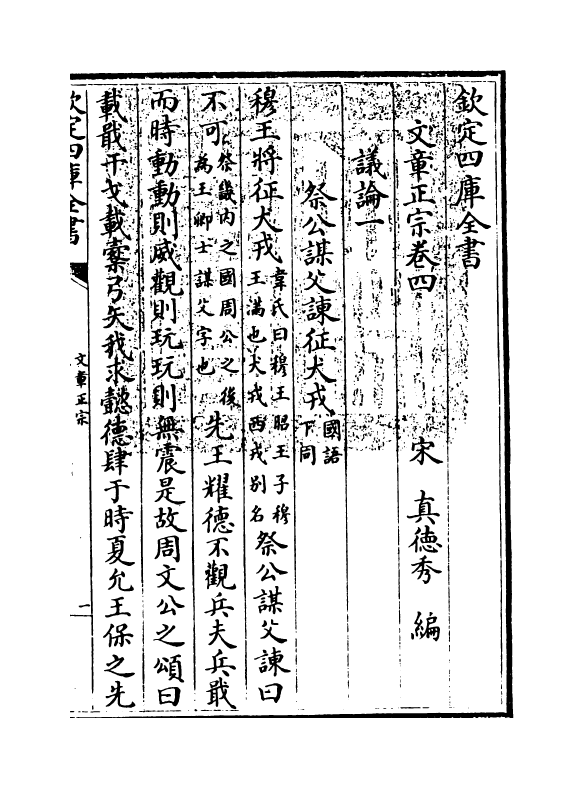 欽定四庫全書
文章正宗卷四
宋 真德秀 編
議論一
祭公謀父諫征犬戎國語下同
穆王將征犬戎韋氏曰穆王昭王子穆王滿也犬戎西戎别名祭公謀父諫曰
不可祭畿内之國周公之後為王卿士謀父字也先王耀德不觀兵夫兵戢
而時動動則威觀則玩玩則無震是故周文公之頌曰
載戢干戈載櫜弓矢我求懿德肆于時夏允王保之先
欽定四庫全書
文章正宗
一